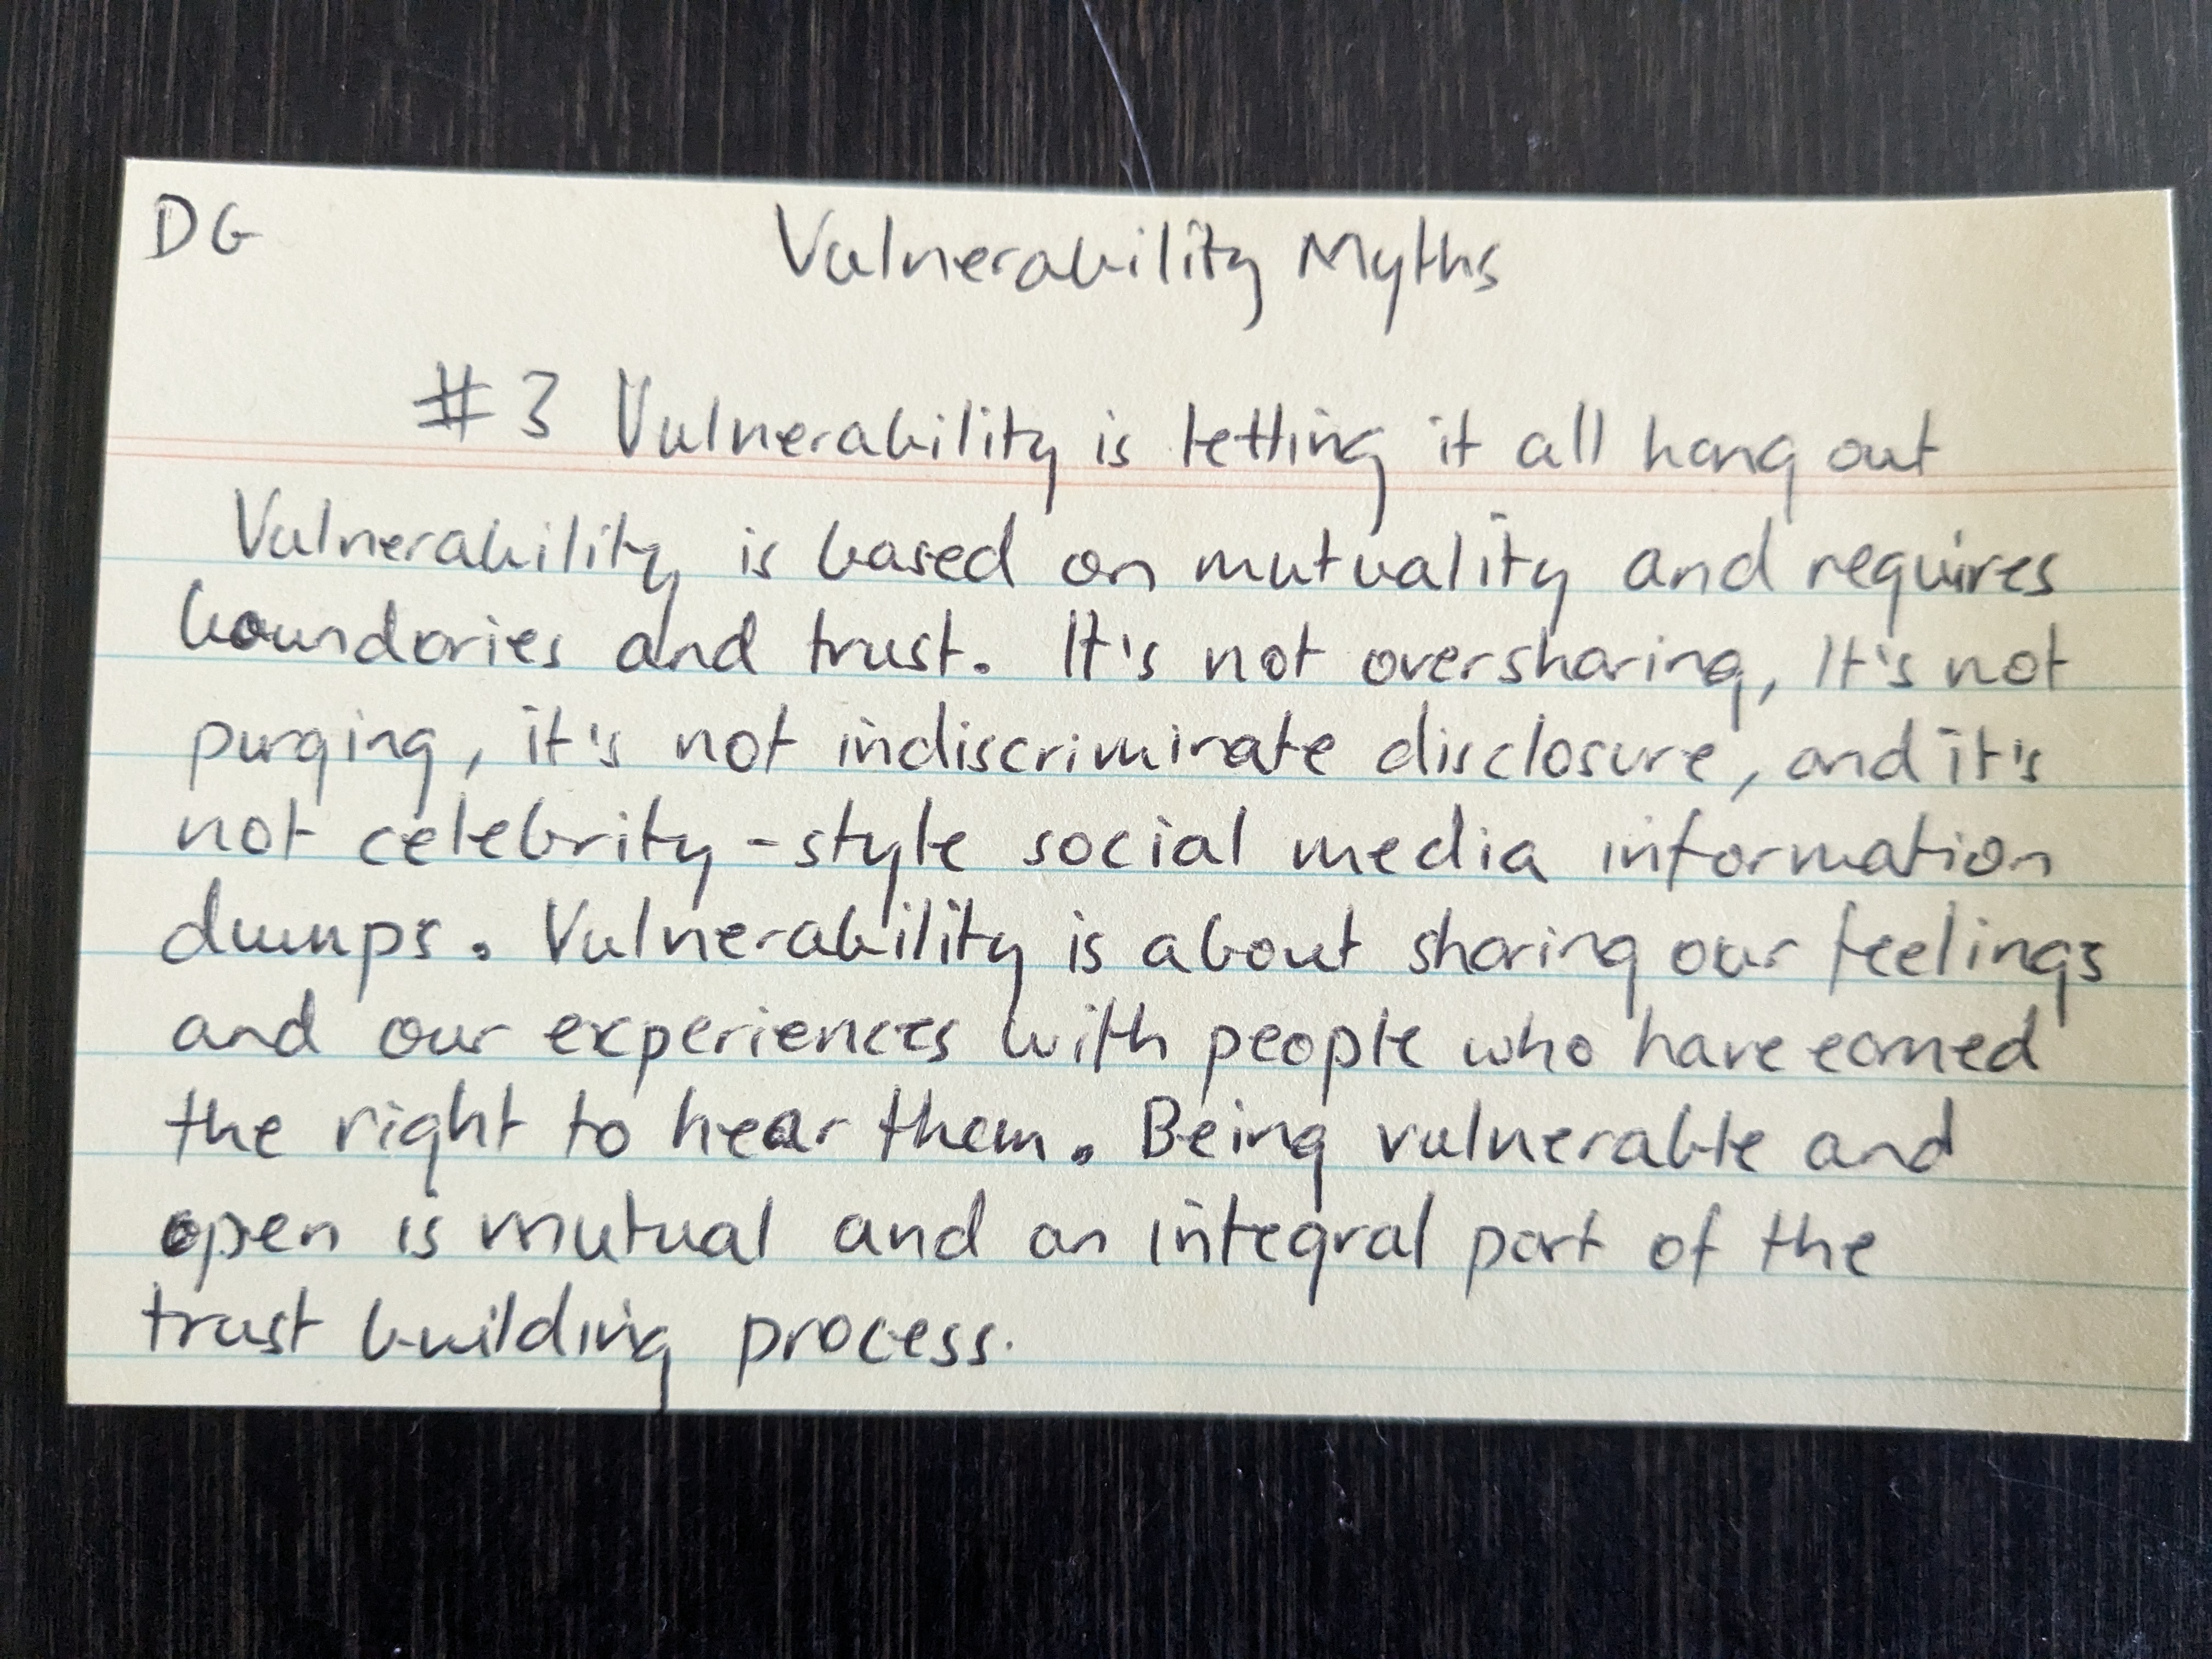 DG
Vulnerability Myths
#3 Vulnerability is letting it all hang out
Vulnerability is based on mutuality and requires
boundaries and trust. It's not oversharing, It's not
purging, it's not indiscriminate disclosure, and it's
not celebrity-style social media information
dumps. Vulnerability is about sharing our feelings
and our experiences with people who have earned
the right to hear them. Being vulnerable and
open is mutual and an integral part of the
trust building process.